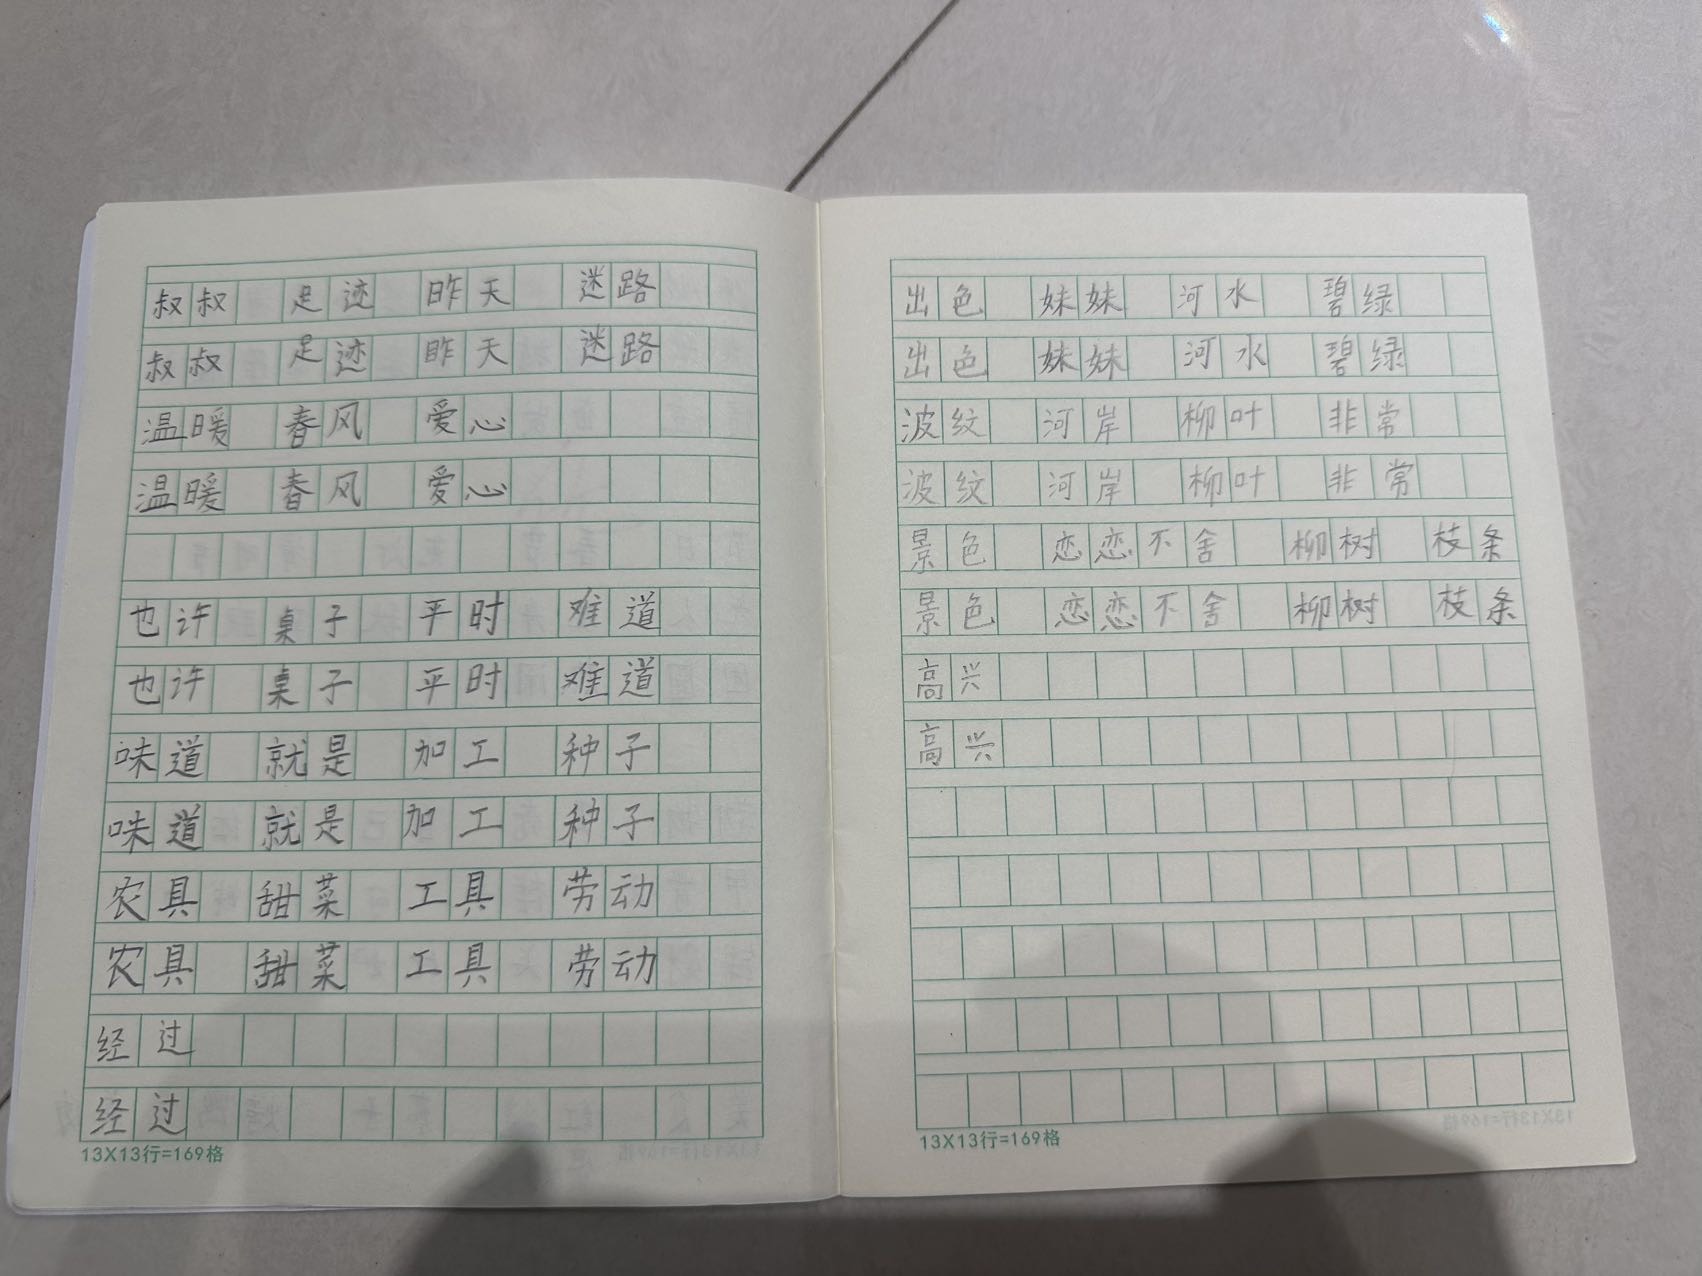 叔叔 足迹 昨天 迷路
叔叔 足迹 昨天 迷路
温暖 春风 爱心
温暖 春风 爱心
也许 桌子 平时 难道
也许 桌子 平时 难道
味道 就是 加工 种子
味道 就是 加工 种子
农具 甜菜 工具 劳动
农具 甜菜 工具 劳动
经过
经过
13X13行=169格
出色 妹妹 河水 碧绿
出色 妹妹 河水 碧绿
波纹 河岸 柳叶 非常
波纹 河岸 柳叶 非常
景色 恋恋不舍 柳树 枝条
景色 恋恋不舍 柳树 枝条
高兴
高兴
13X13行=169格